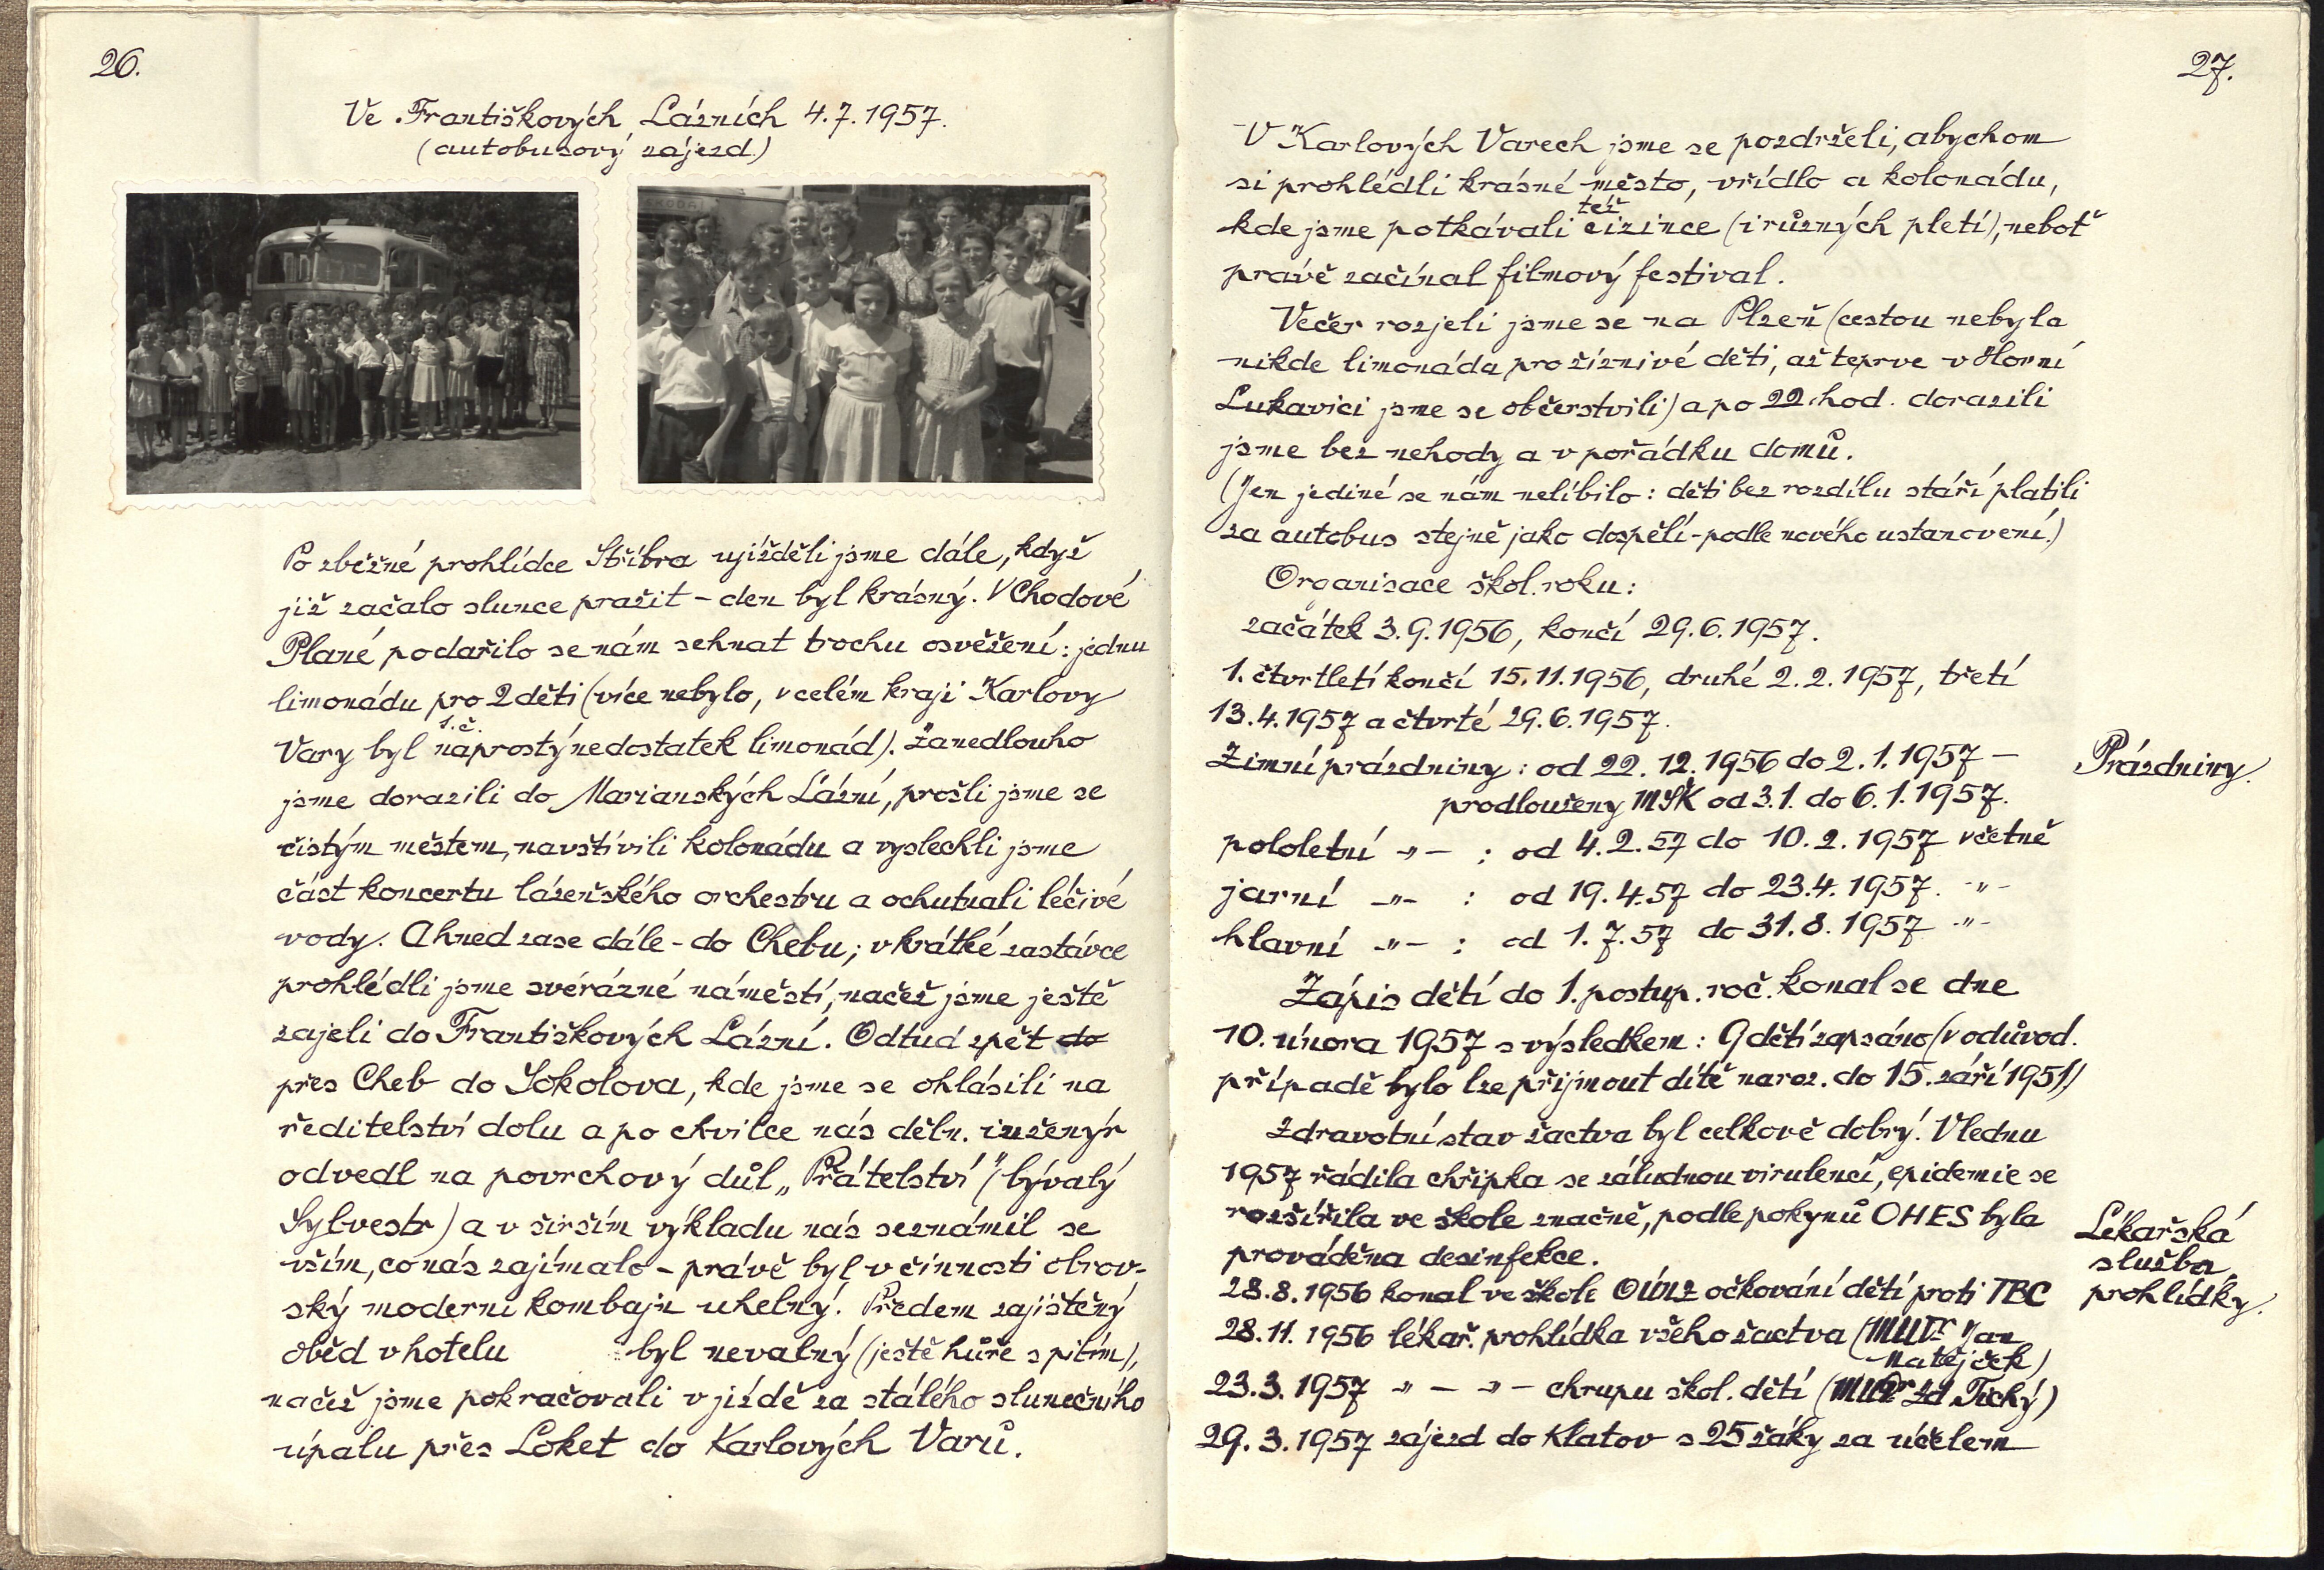 26.
Ve Františkových Lázních 4.7.1957.
(autobusový zájezd.)
ŠKODA
Po zběžné prohlídce Stříbra ujížděli jsme dále, když
již začalo slunce pražit – den byl krásný. V Chodové
Plané podařilo se nám sehnat trochu osvěžení: jednu
limonádu pro 2 děti (více nebylo, v celém kraji Karlovy
1.č.
Vary byl naprostý nedostatek limonád). Zanedlouho
jsme dorazili do Marianských Lázní, prošli jsme se
čistým městem, navštívili kolonádu a vyslechli jsme
část koncertu lázeňského orchestru a ochutnali léčivé
vody. A hned zase dále – do Chebu; v krátké zastávce
prohlédli jsme svérázné náměstí, načež jsme ještě
zajeli do Františkových Lázní. Odtud zpět do
přes Cheb do Sokolova, kde jsme se ohlásili na
ředitelství dolu a po chvilce nás děln. inženýr
odvedl na povrchový důl „Přátelství" (bývalý
Sylvestr) a v širším výkladu nás seznámil se
vším, co nás zajímalo – právě byl v činnosti obrov-
ský moderní kombajn uhelný. Předem zajištěný
oběd v hotelu byl nevalný (ještě hůře s pitím),
načež jsme pokračovali v jízdě za stálého slunečního
úpalu přes Loket do Karlových Varů.
27.
V Karlových Varech jsme se pozdrželi, abychom
si prohlédli krásné město, vřídlo a kolonádu,
též
kde jsme potkávali cizince (i různých pletí), neboť
právě začínal filmový festival.
Večer rozjeli jsme se na Plzeň (cestou nebyla
nikde limonáda pro žíznivé děti, až teprve v Horní
Lukavici jsme se občerstvili) a po 22. hod. dorazili
jsme bez nehody a v pořádku domů.
(Jen jediné se nám nelíbilo: děti bez rozdílu stáří platili
za autobus stejně jako dospělí – podle nového ustanovení.)
Organisace škol. roku:
začátek 3.9.1956, končí 29.6.1957.
1. čtvrtletí končí 15.11.1956, druhé 2.2.1957, třetí
13.4.1957 a čtvrté 29.6.1957.
Zimní prázdniny: od 22.12.1956 do 2.1.1957 –
Prázdniny.
prodlouženy MŠK od 3.1. do 6.1.1957.
pololetní -„- : od 4.2.57 do 10.2.1957 včetně
jarní -„- : od 19.4.57 do 23.4.1957. -„-
hlavní -„- : od 1.7.57 do 31.8.1957 -„-
Zápis dětí do 1. postup. roč. konal se dne
10. února 1957 s výsledkem: 9 dětí zapsáno (v odůvod.
případě bylo lze přijmout dítě naroz. do 15. září 1951)
Zdravotní stav žactva byl celkově dobrý. V lednu
1957 řádila chřipka se záludnou virulencí, epidemie se
rozšířila ve škole značně, podle pokynů OHES byla
prováděna desinfekce.
Lékařská
služba,
prohlídky.
28.8.1956 konal ve škole OÚNZ očkování dětí proti TBC
28.11.1956 lékař. prohlídka všeho žactva (MUDr Jan
Matějček)
23.3.1957 -„- -„- chrupu škol. dětí (MUDr Zd. Tichý)
29.3.1957 zájezd do Klatov s 25 žáky za účelem